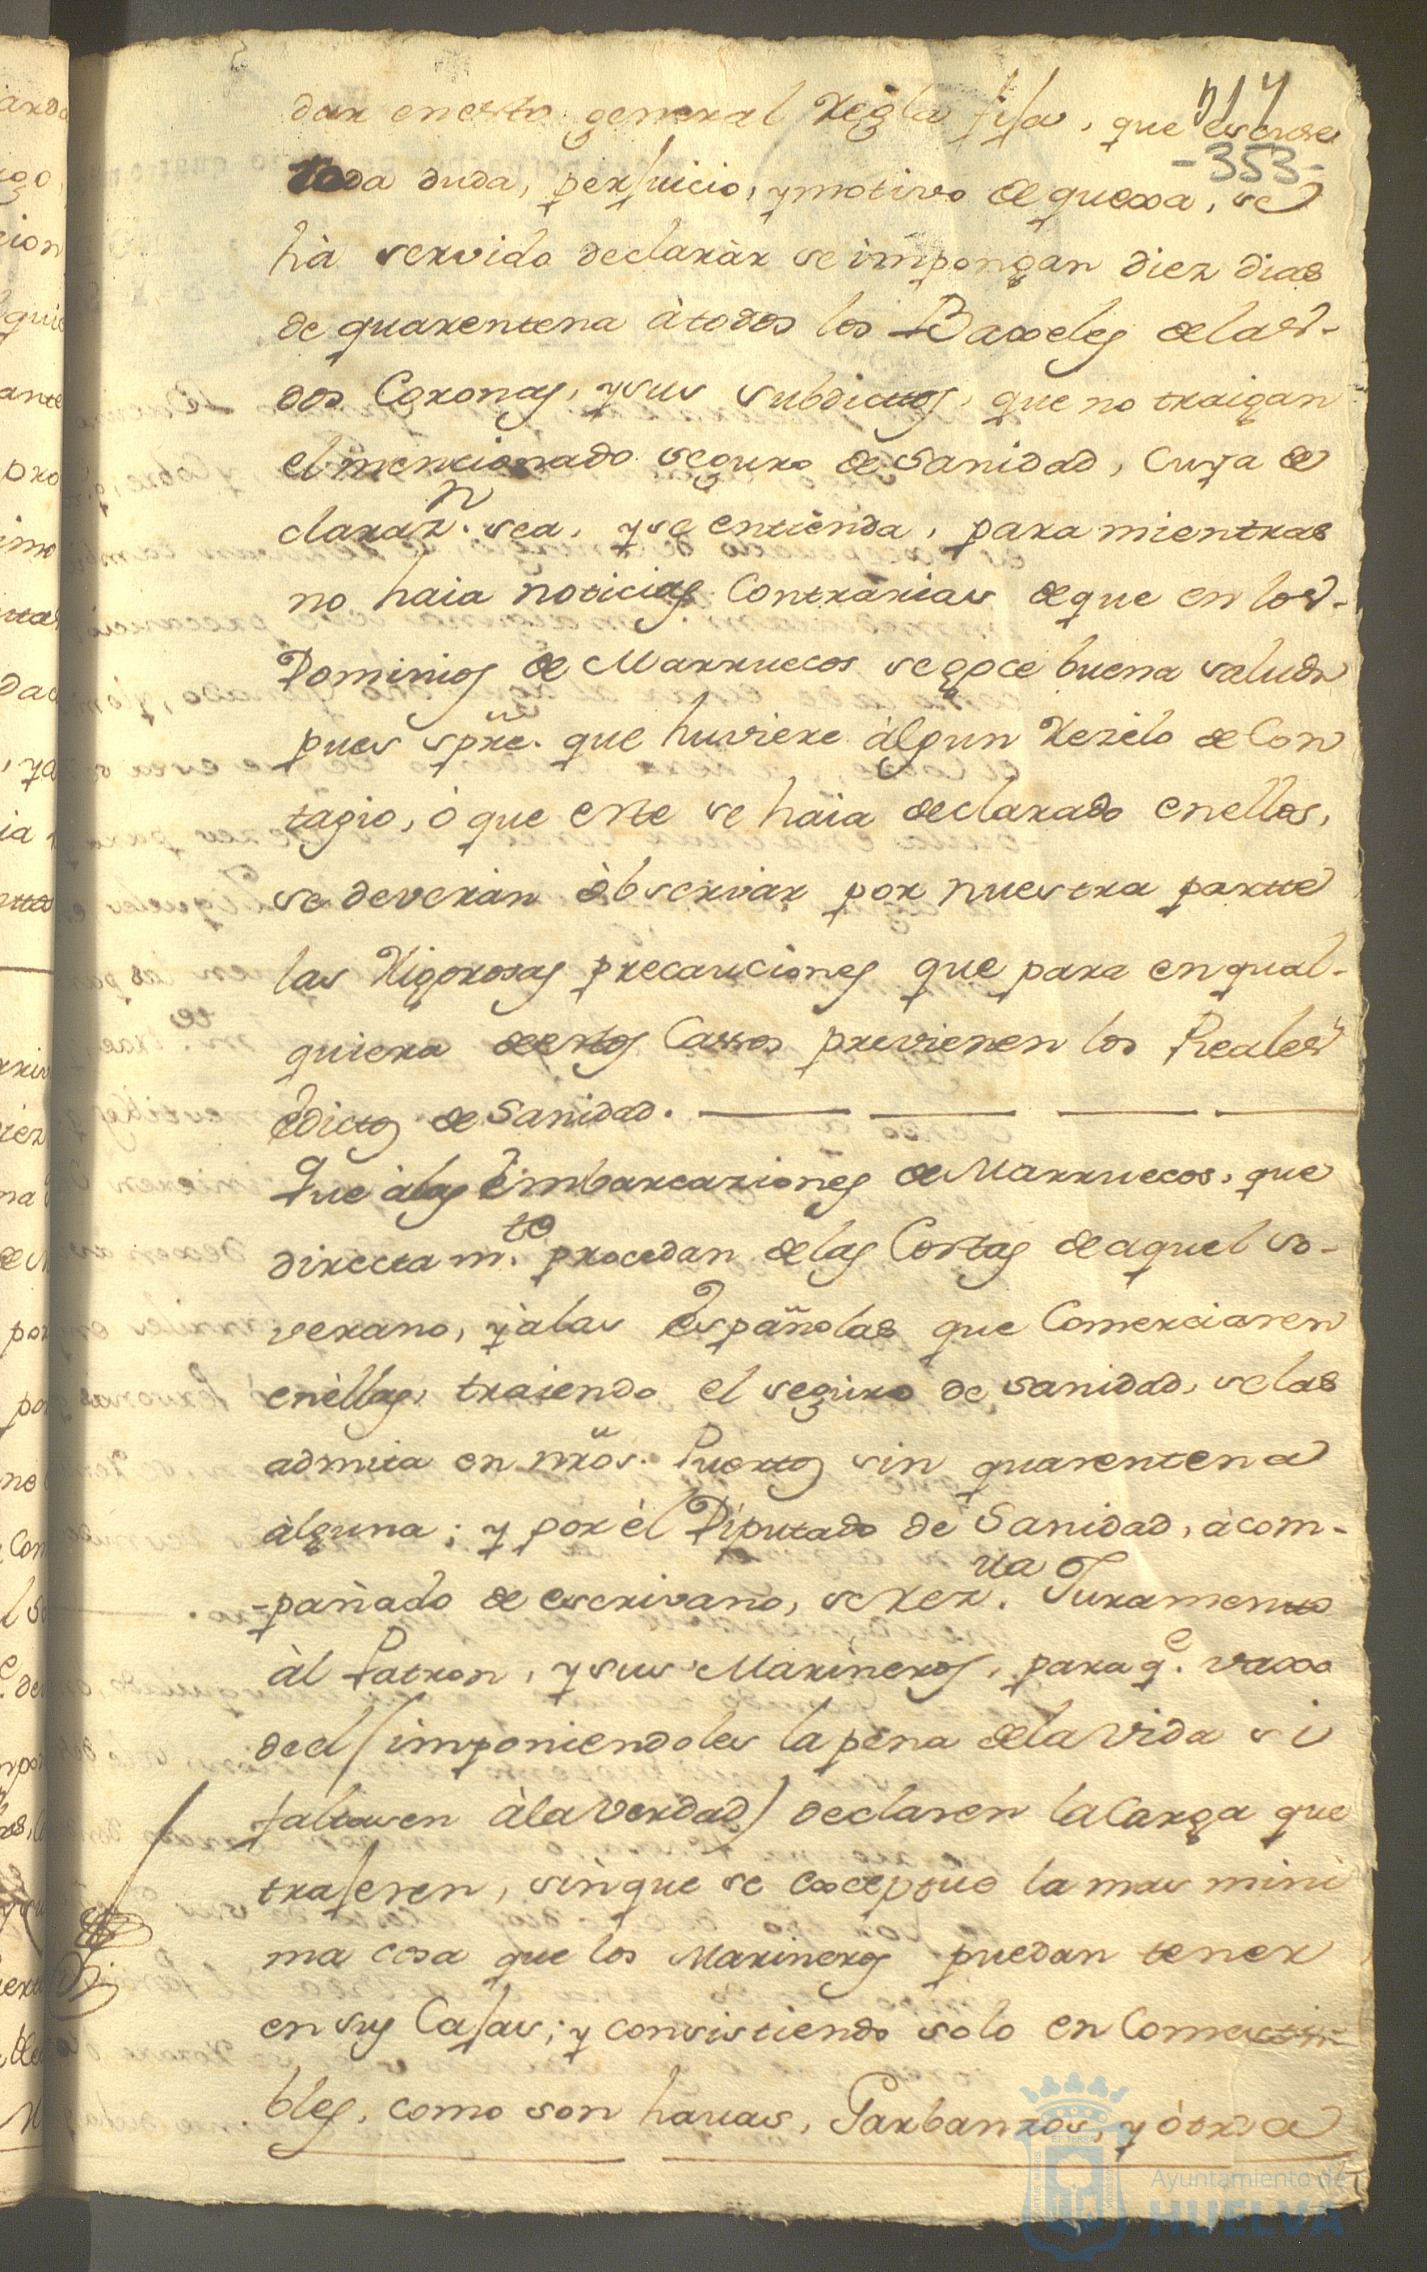 dar en esto general Regla fija, que escuse
-353-
toda duda, perjuicio, y motivo de quexa, se
hà servido declaràr se impongan diez dias
de quarentena à todos los Baxeles de las-
dos Coronas, y sus subdictos, que no traigan
el mencionado seguro de Sanidad, cuya de
claraz.n sea, y se entienda, para mientras
no haia noticias Contrarias de que en los-
Dominios de Marruecos se goce buena salud
pues spre. que huviere àlgun Rezelo de Con
tagio, ò que este se haia declarado en ellos,
se deveràn òbservar por nuestra partte
las Rigorosas precauciones que para en qual-
quiera de estos Cassos previenen los Reales
Edictos de Sanidad.
Que à las Embarcaziones de Marruecos, que
directam.te procedan de las Costas de aquel so-
verano, y à las Españolas que Comerciaren
en èllas, traiendo el seguro de sanidad, se las
admita en nros. Puertos sin quarentena
àlguna; y por èl Diputado de Sanidad, àcom-
-pañado de escrivano, se Rez.va Juramento
àl Patron, y sus Marineros, para q.e vaxo
deel (imponiendoles la pena de la vida si
faltasen à la verdad) declaren la Carga que
trajeren, sin que se exceptue la mas mini
ma cosa que los Marineros puedan tener
en sus Cajas; y consistiendo solo en Comesti-
bles, como son havas, Garbanzos, y òtra
Ayuntamiento de
HUELVA